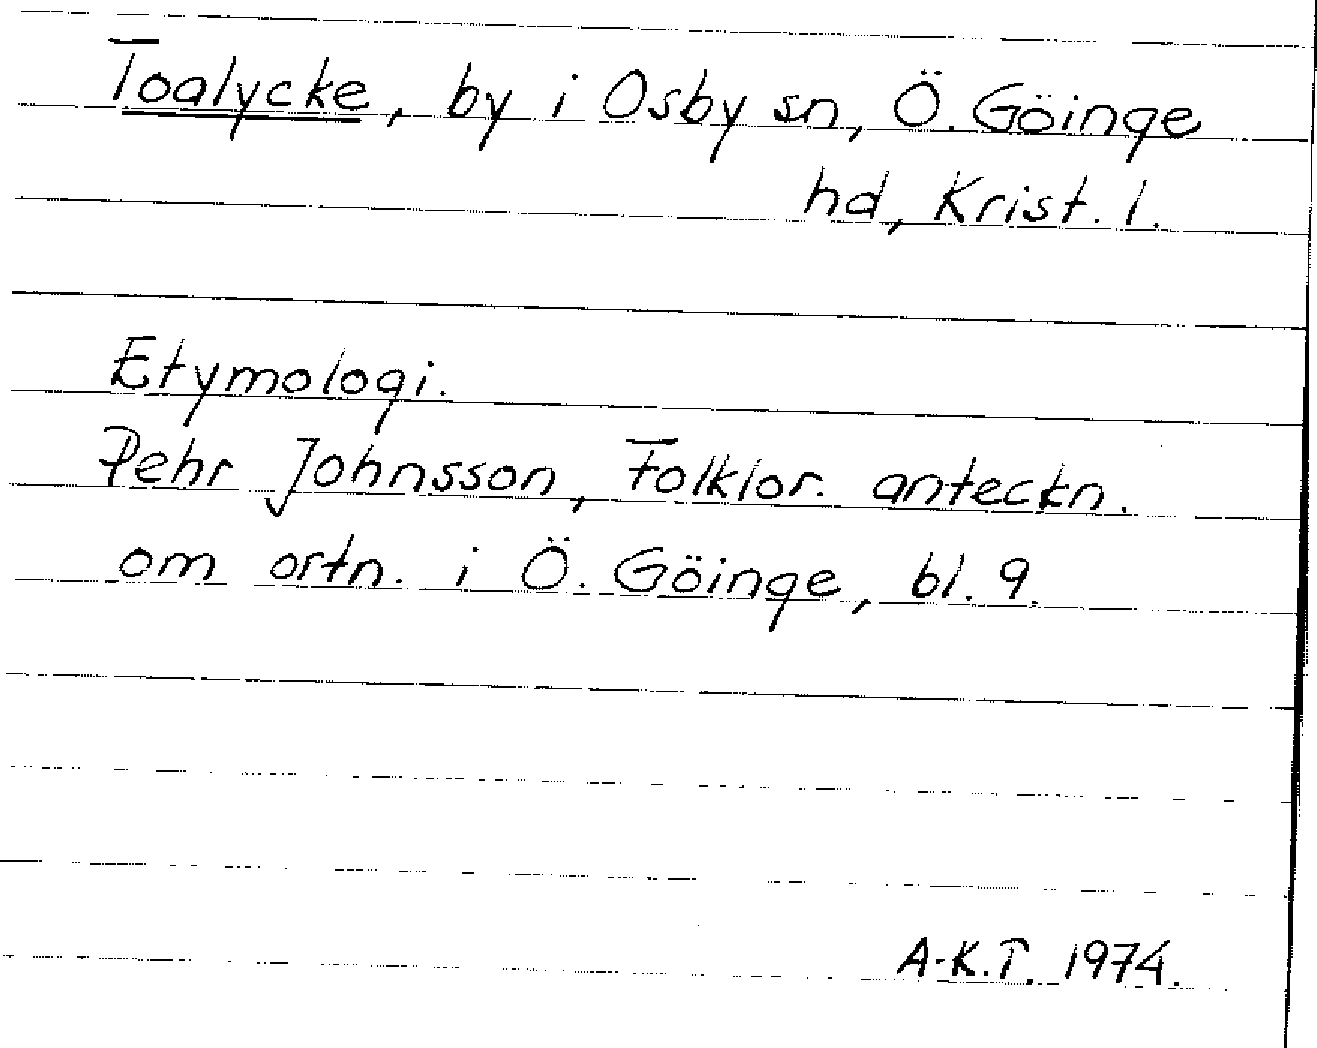 Toalycke, by i Osby sn, Ö. Göinge
hd, Krist. l.
Etymologi.
Pehr Johnsson, Folklor. anteckn.
om ortn. i Ö. Göinge, bl. 9.
A-K.T. 1974.